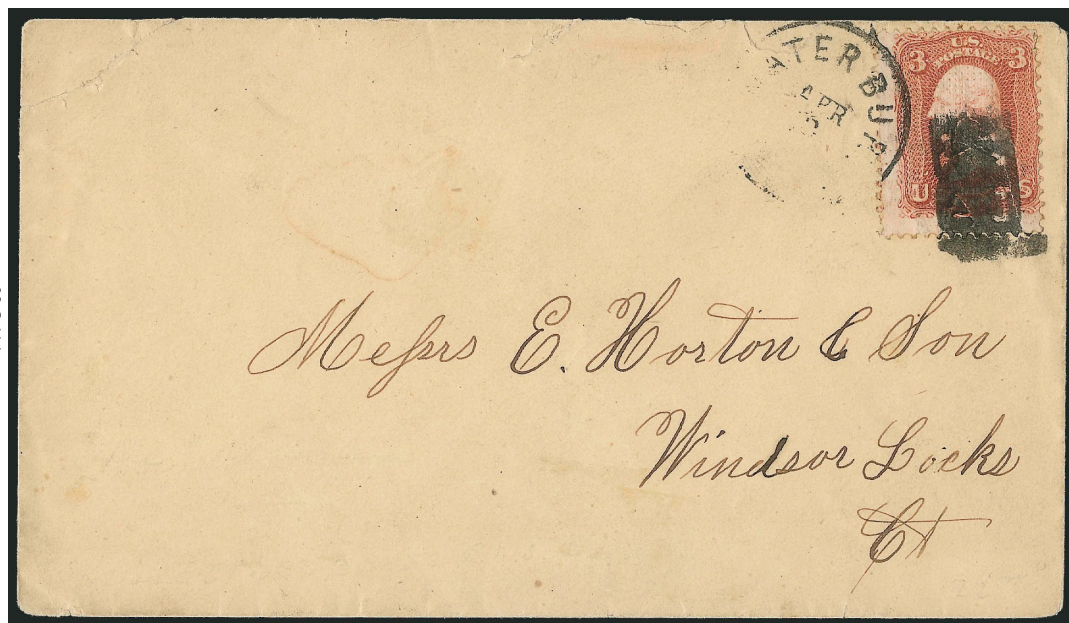 ATERBUR
APR
U.S.
POSTAGE
3 3
U S
Messrs E. Horton & Son
Windsor Locks
Ct